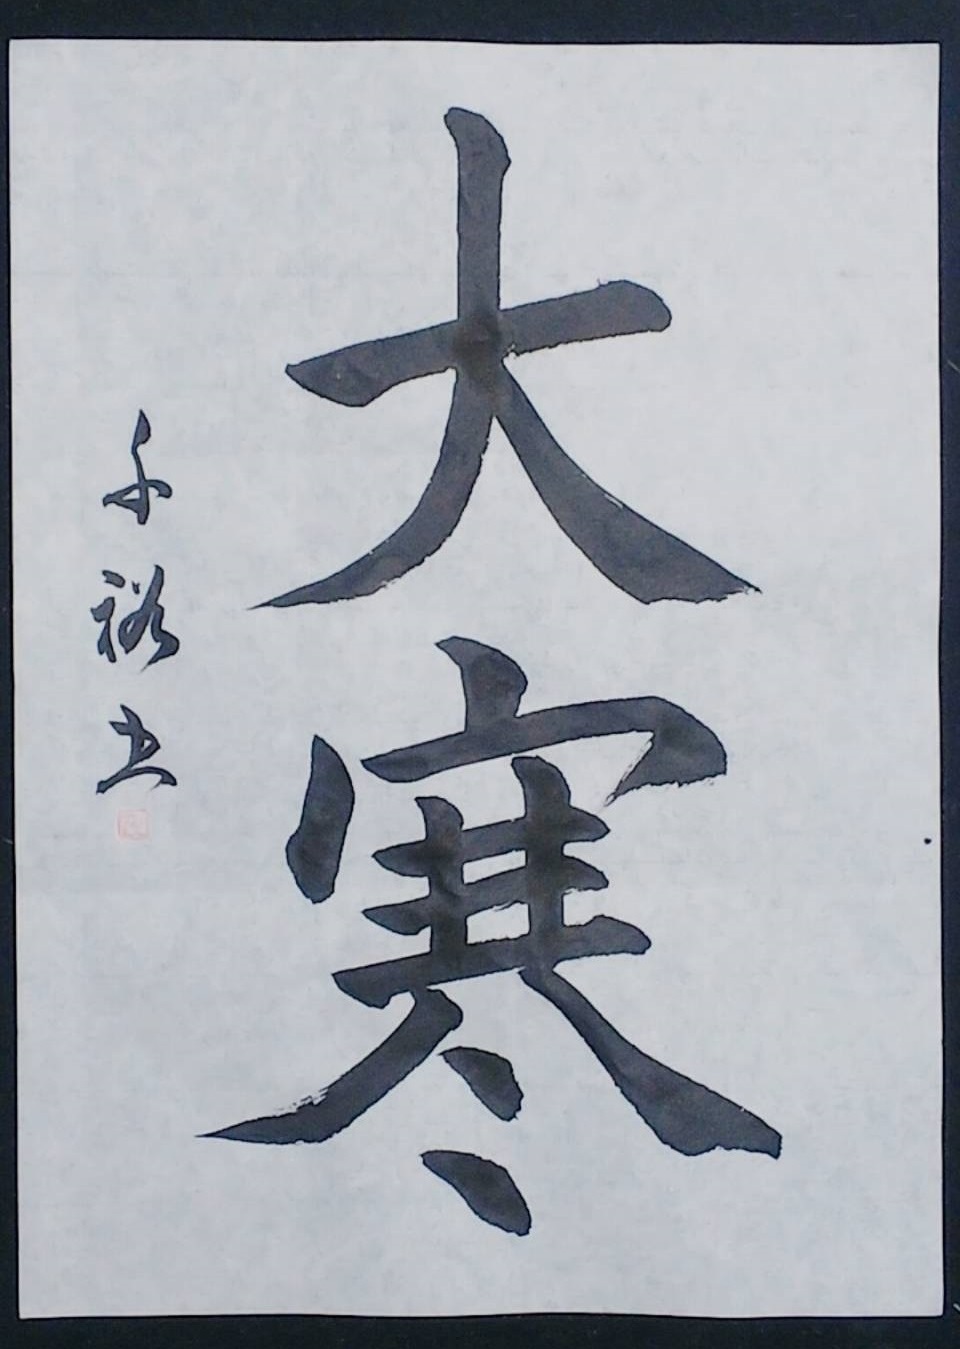 大寒
千裕書